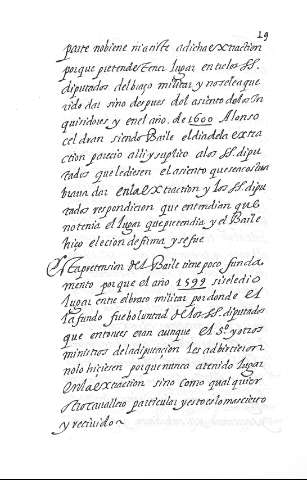 19
parte nobiene niasiste adicha extraction
porque pretende tener lugar entre los SS.
diputados del braço militar y no se lea que
rido dar sino despues del asiento delos in
quisidores y en el año de 1600 Alonso
celdran siendo Baile el dia dela extra
ction parecio alli y suplico alos SS. dipu
tados que le diesen el asiento que se acostum
brava dar en la extraction y los SS. dipu
tados respondieron que entendian que
no tenia el lugar que pretendia y el Baile
hiço elecion de firma y se fue
Esta pretension del Baile tiene poco funda
mento por que el año 1599 si se le dio
lugar entre el braço militar por donde el
la fundo fue boluntad de los SS. diputados
que entonces eran aunque el S.º y otros
ministros de la diputacion les advirtieron
no lo hiciesen porque nunca a tenido lugar
en la extraction sino como qual quier
otro cavallero particular y esto es lo mas cierto
y recivido